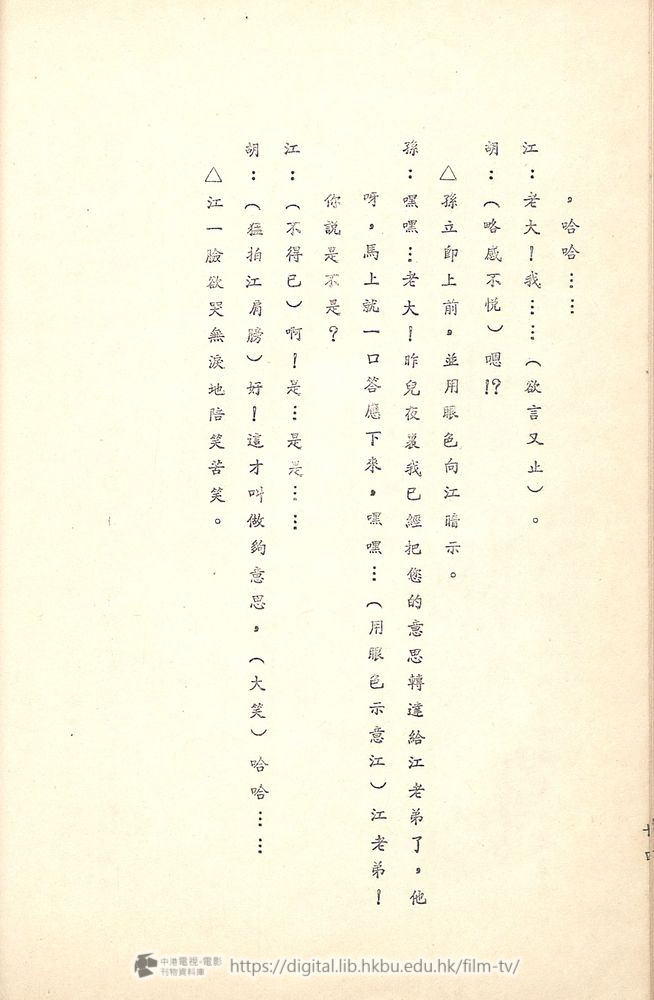 ，哈哈……
江：老大！我……（欲言又止）。
胡：（略感不悅）嗯!?
△孫立即上前，並用眼色向江暗示。
孫：嘿嘿…老大！昨兒夜裏我已經把您的意思轉達給江老弟了，他
呀，馬上就一口答應下來，嘿嘿…（用眼色示意江）江老弟！
你說是不是？
江：（不得已）啊！是…是是……
胡：（猛拍江肩膀）好！這才叫做夠意思，（大笑）哈哈……
△江一臉欲哭無淚地陪笑苦笑。
中港電視·電影
刊物資料庫
https://digital.lib.hkbu.edu.hk/film-tv/